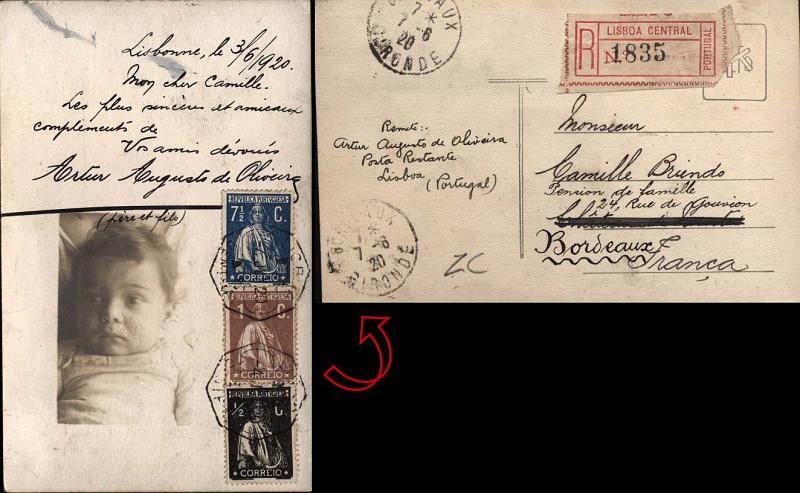 Lisbonne, le 3/6/920.
Mon cher Camille.
Les plus sincères et amicaux
complements de
Vos amis dévoués
Artur Augusto de Oliveira
(père et fils)
REPUBLICA PORTUGUESA
7½ C.
CORREIO
REPUBLICA PORTUGUESA
1 C.
CORREIO
REPUBLICA PORTUGUESA
½ C.
CORREIO
BORDEAUX
7 * 
7 - 6
20
GIRONDE
R
LISBOA CENTRAL
N.º 1835
PORTUGAL
Remete:-
Artur Augusto de Oliveira
Posta Restante
Lisboa
(Portugal)
Monsieur
Camille Briendo
Pension de famille
124, Rue de
Bordeaux
França
BORDEAUX
7 - 6
20
GIRONDE
ZC